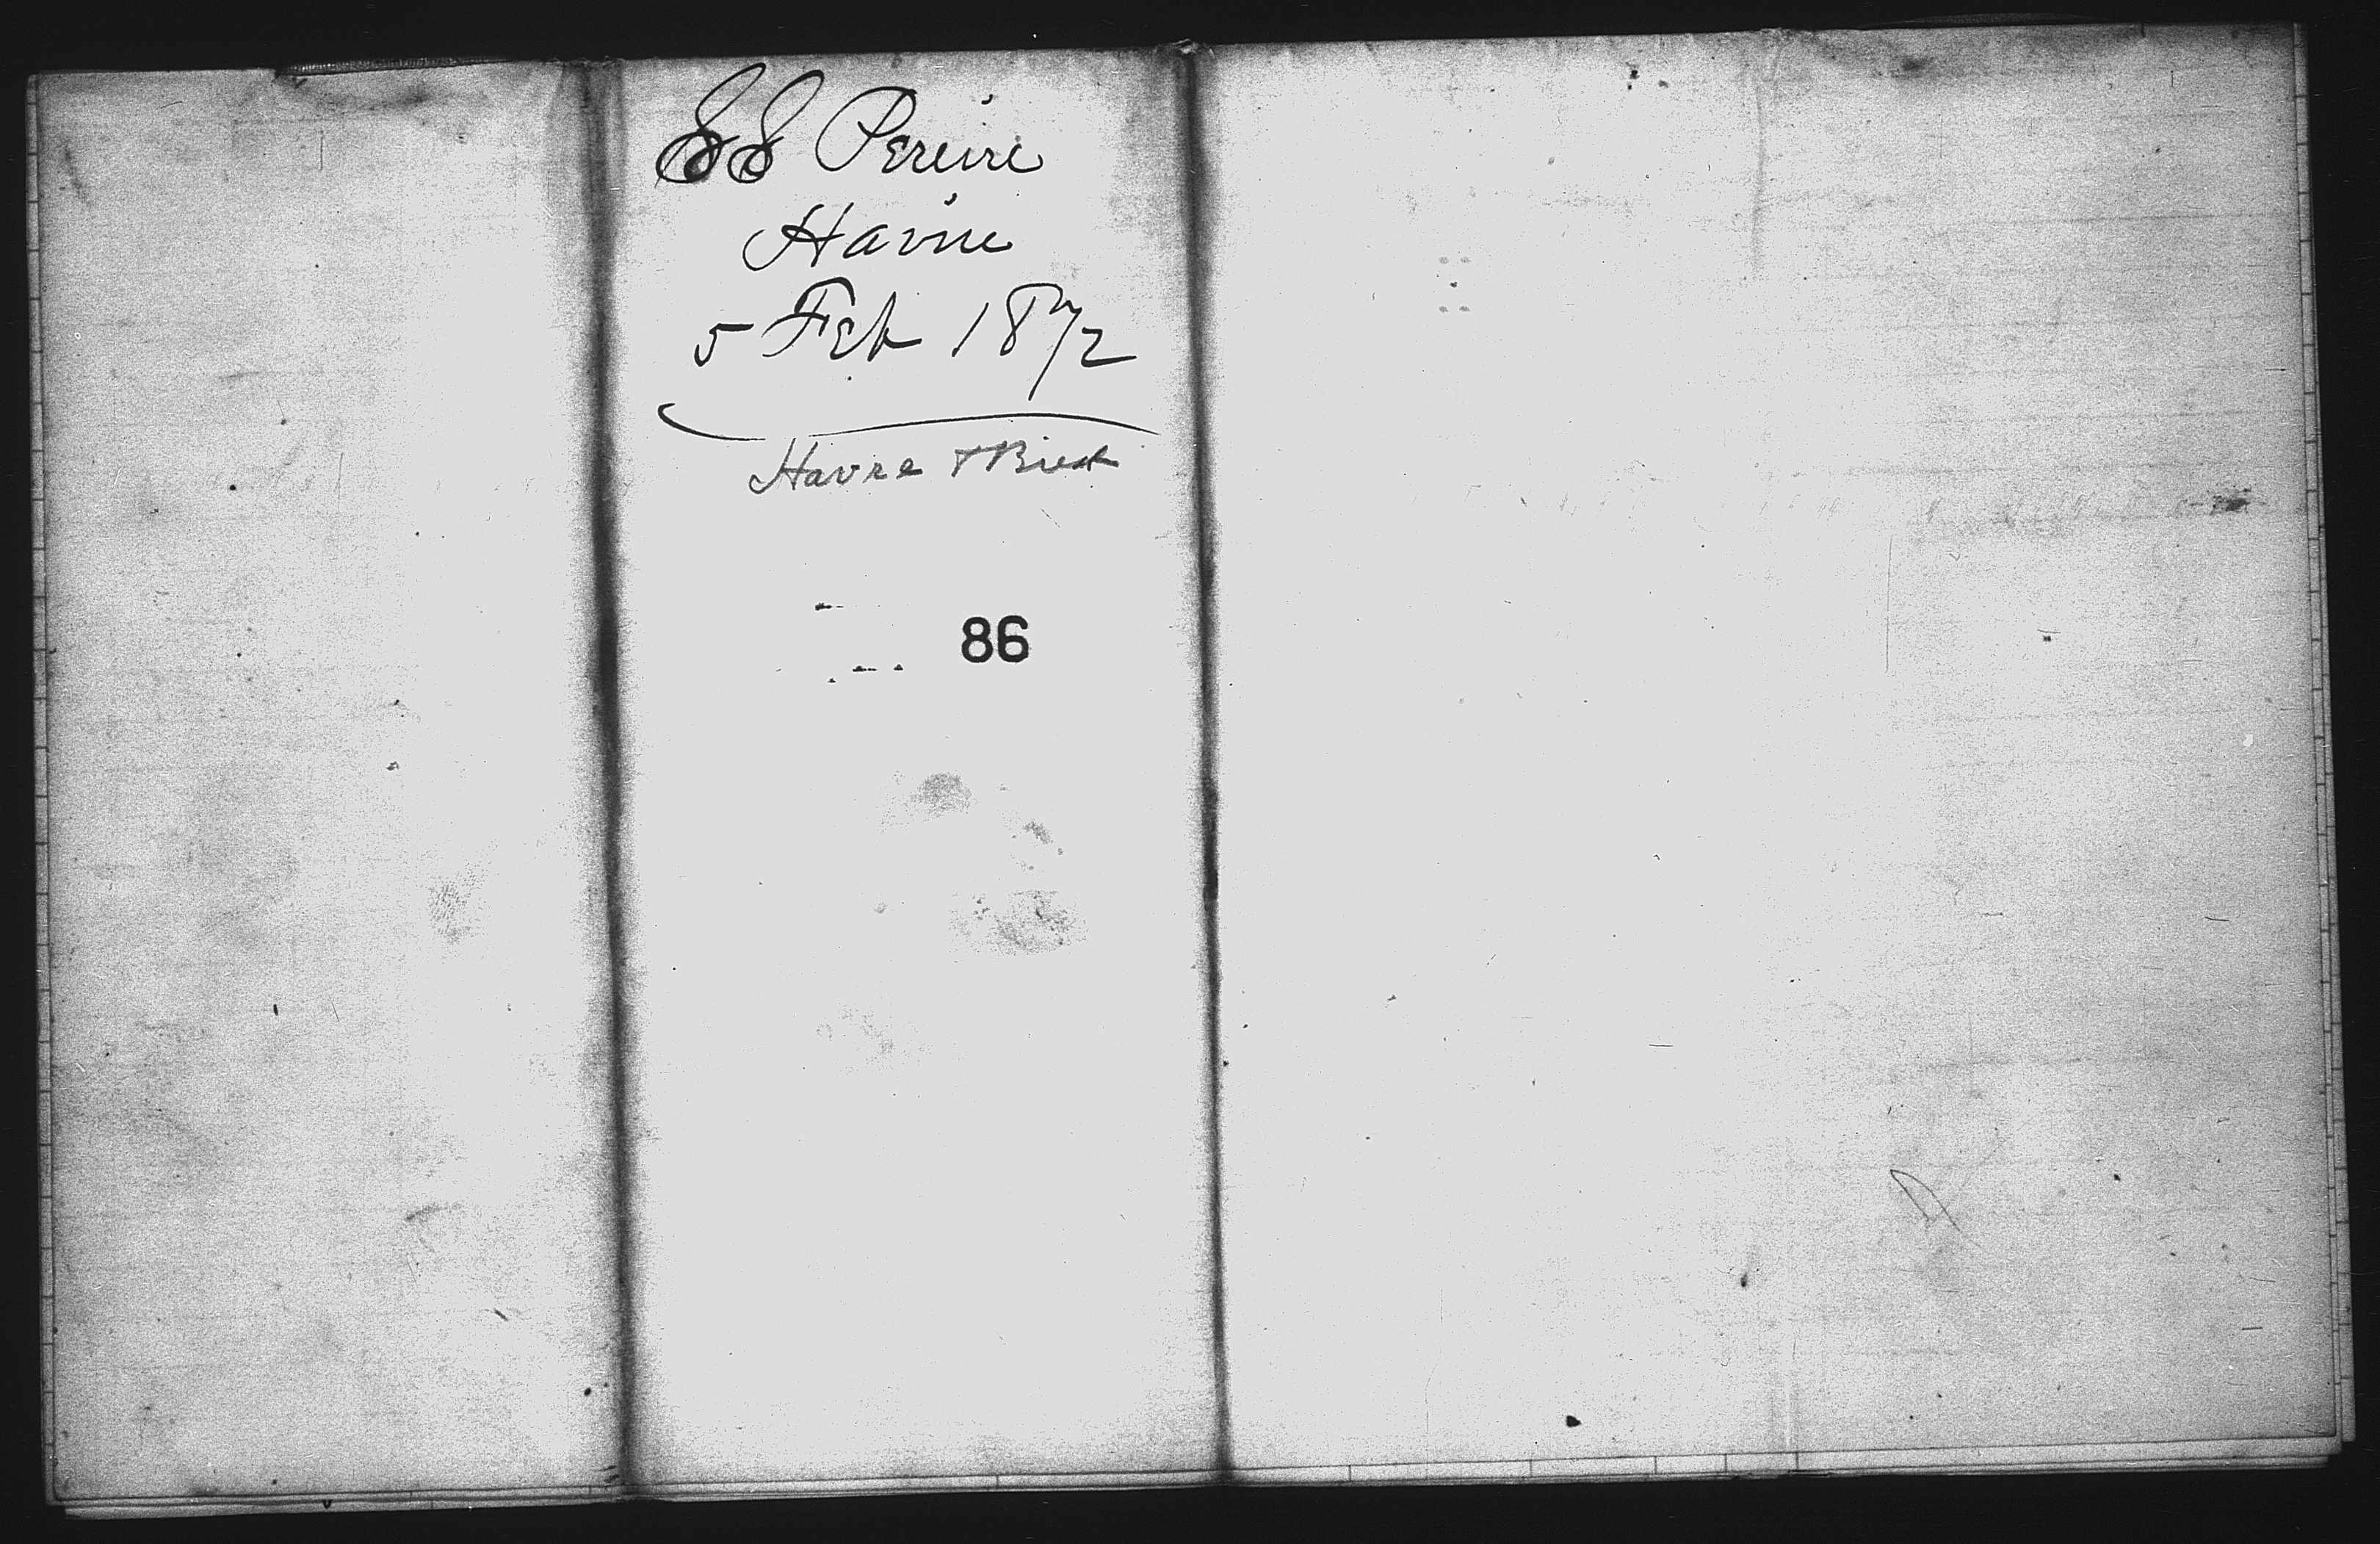 SS Pereire
Havre
5 Feb 1872
Havre & Brest
86